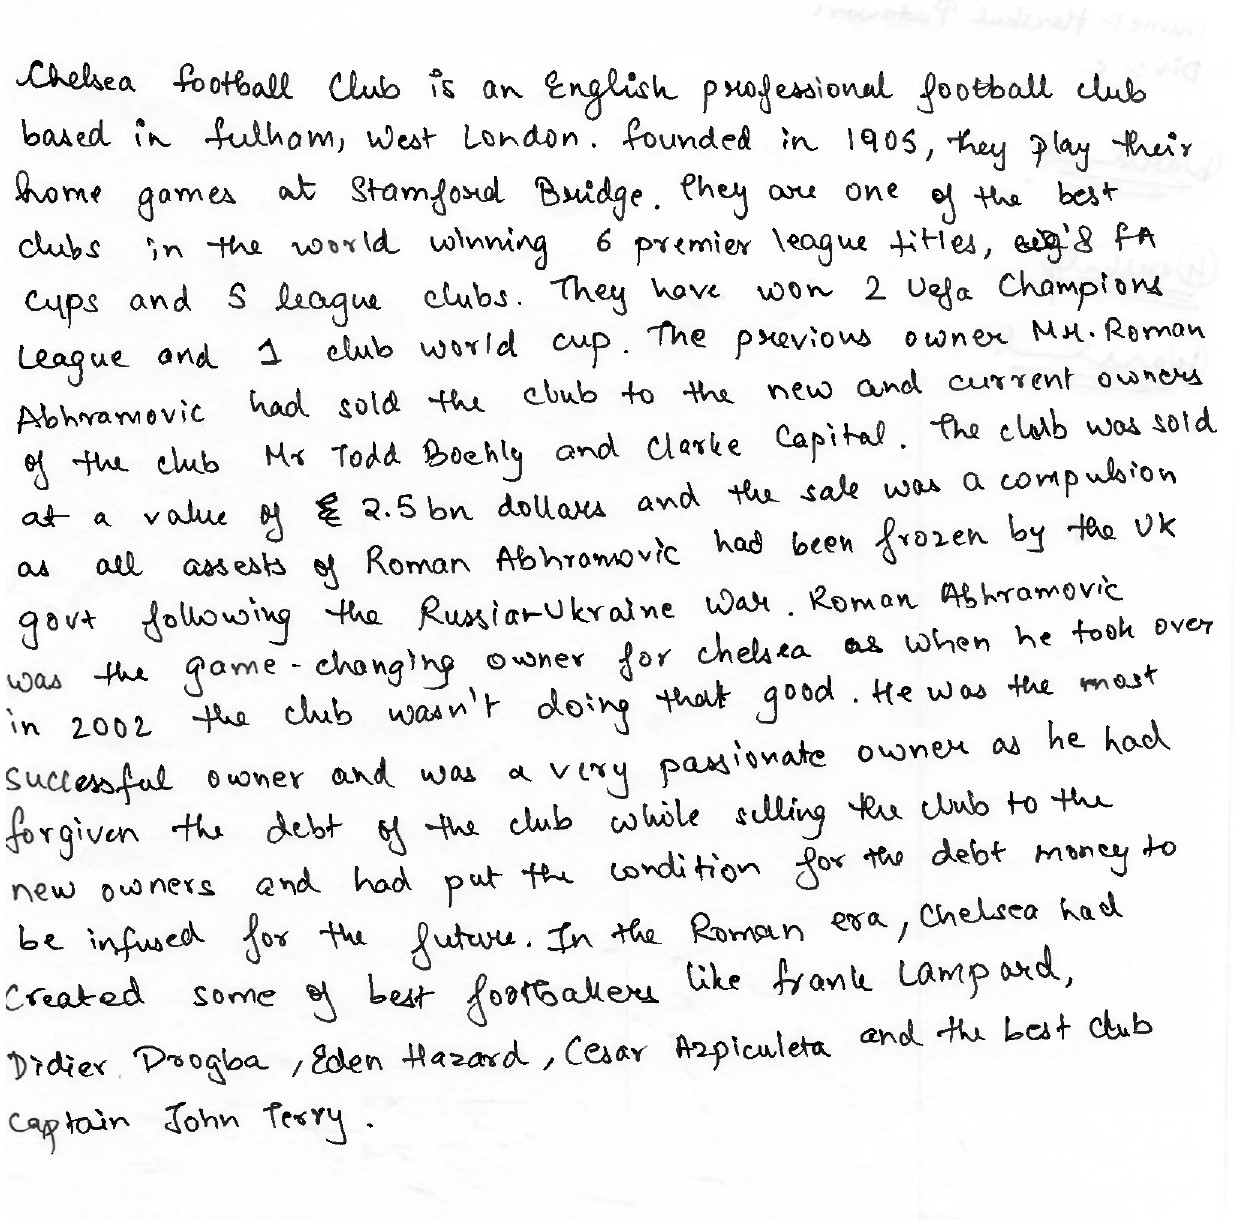 Chelsea football Club is an English professional football club
based in fulham, West London. founded in 1905, they play their
home games at Stamford Bridge. They are one of the best
clubs in the world winning 6 premier league titles, 8 FA
cups and 5 league clubs. They have won 2 Uefa Champions
League and 1 club world cup. The previous owner Mr. Roman
Abhramovic had sold the club to the new and current owners
of the club Mr Todd Boehly and Clarke Capital. The club was sold
at a value of 2.5 bn dollars and the sale was a compulsion
as all assests of Roman Abhramovic had been frozen by the UK
govt following the Russia-Ukraine War. Roman Abhramovic
was the game-changing owner for chelsea as when he took over
in 2002 the club wasn't doing that good. He was the most
successful owner and was a very passionate owner as he had
forgiven the debt of the club while selling the club to the
new owners and had put the condition for the debt money to
be infused for the future. In the Roman era, Chelsea had
created some of best footballers like frank Lampard,
Didier Drogba, Eden Hazard, Cesar Azpiculeta and the best club
captain John Terry.